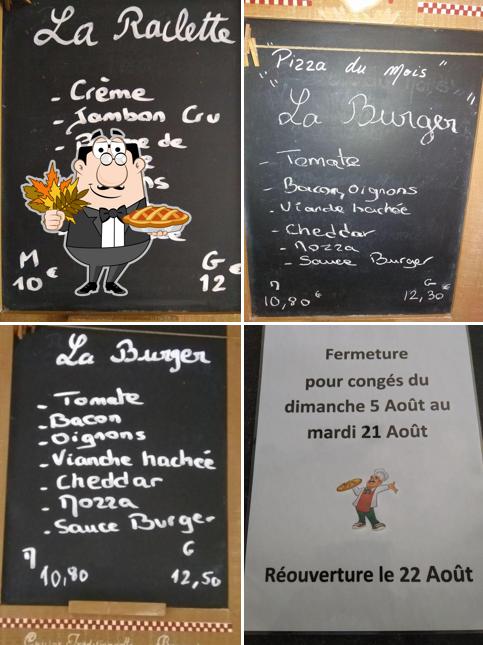 La Raclette
- Crème
- Jambon Cru
de
M G
10 € 12 €
"Pizza du mois"
"La Burger"
- Tomate
- Bacon, Oignons
- Viande hachée
- Cheddar
- Mozza
- Sauce Burger
M G
10,80 € 12,30 €
La Burger
- Tomate
- Bacon
- Oignons
- Viande hachée
- Cheddar
- Mozza
- Sauce Burger
M G
10,80 12,50
Fermeture
pour congés du
dimanche 5 Août au
mardi 21 Août
Réouverture le 22 Août